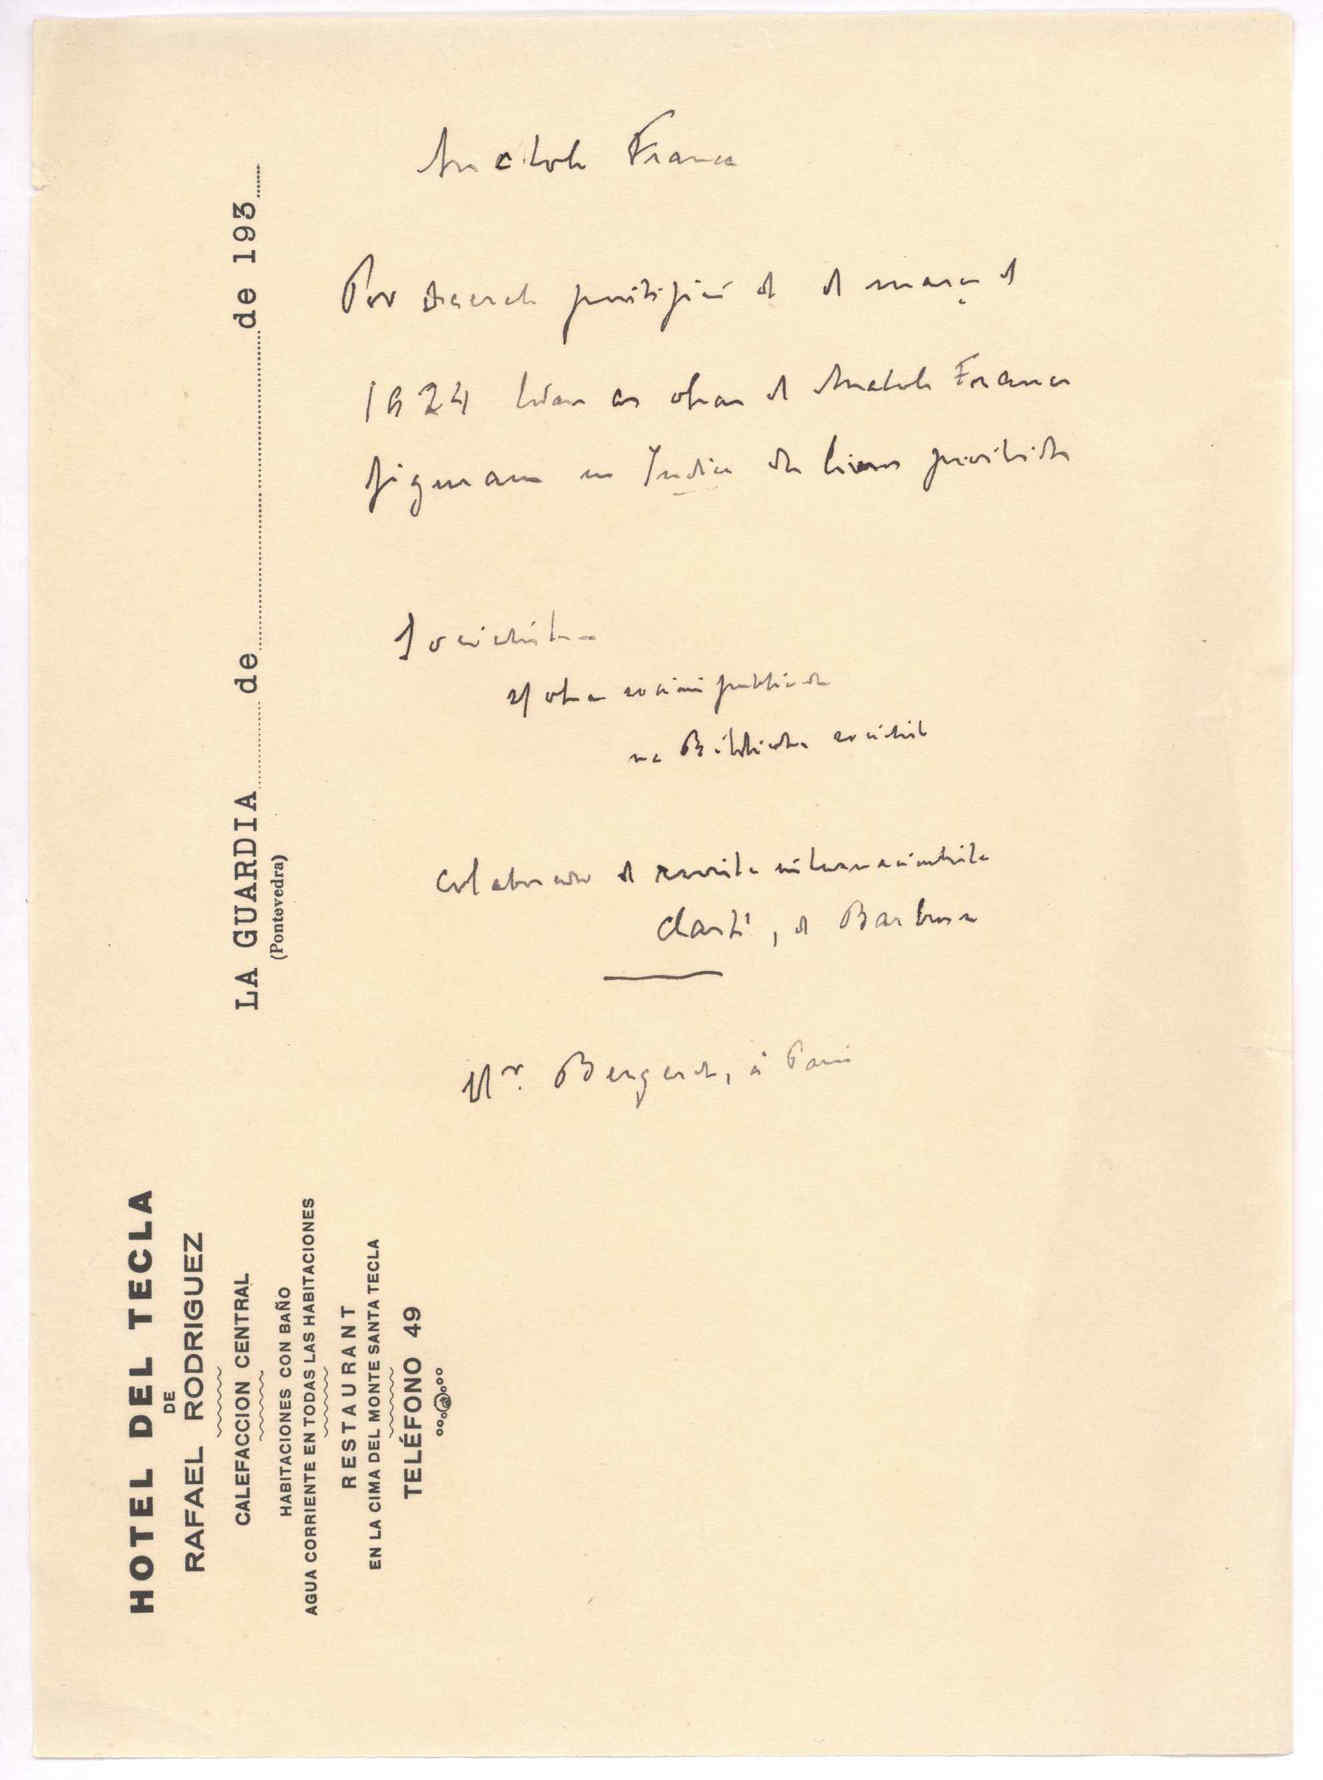 HOTEL DEL TECLA
DE
RAFAEL RODRIGUEZ
CALEFACCION CENTRAL
HABITACIONES CON BAÑO
AGUA CORRIENTE EN TODAS LAS HABITACIONES
RESTAURANT
EN LA CIMA DEL MONTE SANTA TECLA
TELÉFONO 49
LA GUARDIA de de 193
(Pontevedra)
Anatole France
Por decreto pontifício de de março de
1924 as obras de Anatole France
figuram no Indice de livros proibidos
Socialista
publicada
na Biblioteca socialista
colaborador de revista
Clarté, de Barbusse
Mr. Bergeret, à Paris